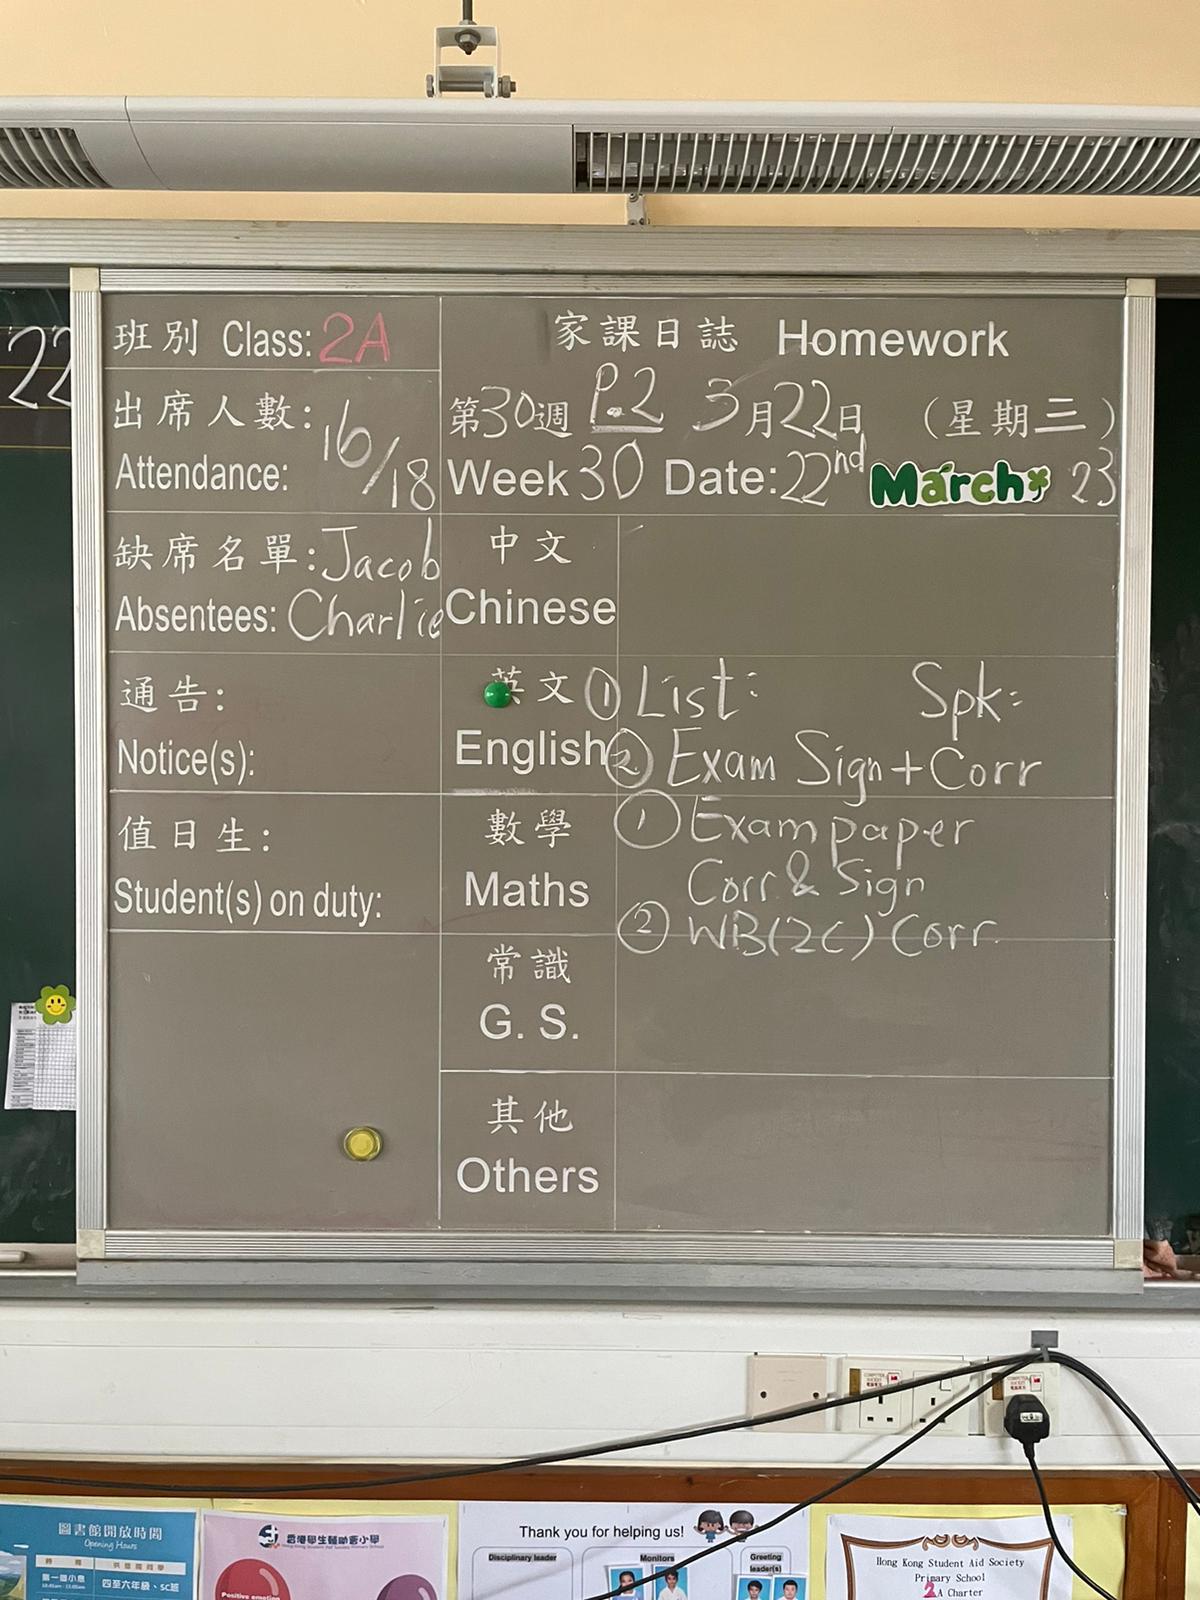 22
班別 Class: 2A
出席人數: 16/18
Attendance:
缺席名單: Jacob
Absentees: Charlie
通告:
Notice(s):
值日生:
Student(s) on duty:
家課日誌 Homework
第30週 P.2 3月22日 (星期三)
Week 30 Date: 22nd March 23
中文
Chinese
英文 ① List: Spk:
English ② Exam Sign + Corr
數學 ① Exam paper
Maths Corr & Sign
② WB(2C) Corr.
常識
G. S.
其他
Others
圖書館開放時間
Opening Hours
第一個小息
四至六年級、SC班
香港學生輔助會小學
Positive emotion
Thank you for helping us!
Disciplinary leader
Monitors
Greeting
leader(s)
Hong Kong Student Aid Society
Primary School
2A Charter